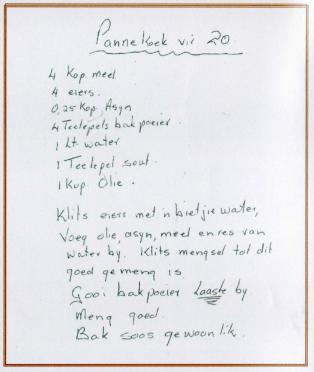 Pannekoek vir 20.
4 Kop meel
4 eiers.
0,25 Kop Asyn
4 Teelepels bakpoeier.
1 Lt water
1 Teelepel sout.
1 Kop Olie.
Klits eiers met 'n bietjie water,
Voeg olie, asyn, meel en res van
water by. Klits mengsel tot dit
goed gemeng is.
Gooi bakpoeier laaste by
Meng goed.
Bak soos gewoonlik.